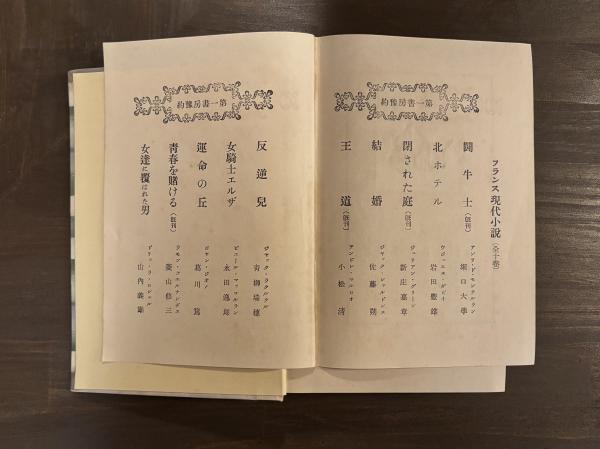 第一書房豫約
フランス現代小説（全十卷）
鬪牛士（既刊）
アンリ・ド・モンテルラン
堀口大學
北ホテル
ウジェエヌ・ダビイ
岩田豐雄
閉された庭（既刊）
ジュリアン・グリーン
新庄嘉章
結婚
ジャック・シャルドンヌ
佐藤朔
王道（既刊）
アンドレ・マルロオ
小松清
第一書房豫約
反逆兒
ジャック・ラクルテル
青柳瑞穗
女騎士エルザ
ピエール・マッコルラン
永田逸郎
運命の丘
ジャン・ジオノ
葛川篤
靑春を賭ける（既刊）
ラモン・フェルナンデス
菱山修三
女達に覆はれた男
ドリュ・ラ・ロシェル
山內義雄